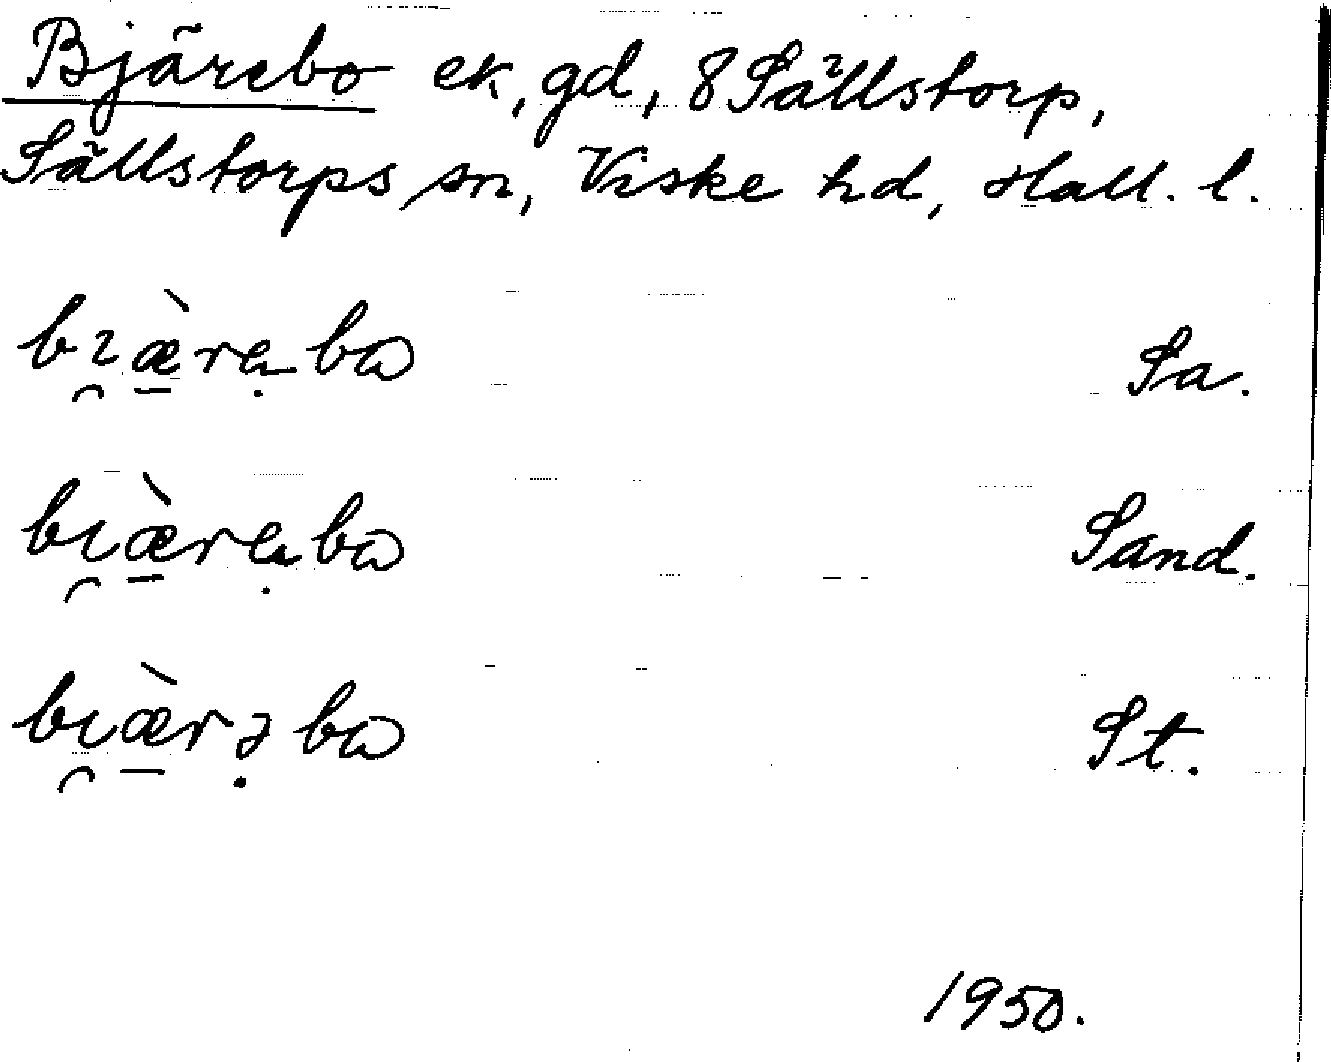 Bjärebo ek, gd, 8 Sällstorp,
Sällstorps sn, Viske hd, Hall. l.
bɪ̯æ̲̀rẹbɷ Sa.
bɩ̯æ̲̀rẹbɷ Sand.
bɩ̯æ̲̀rə̣bɷ St.
1950.